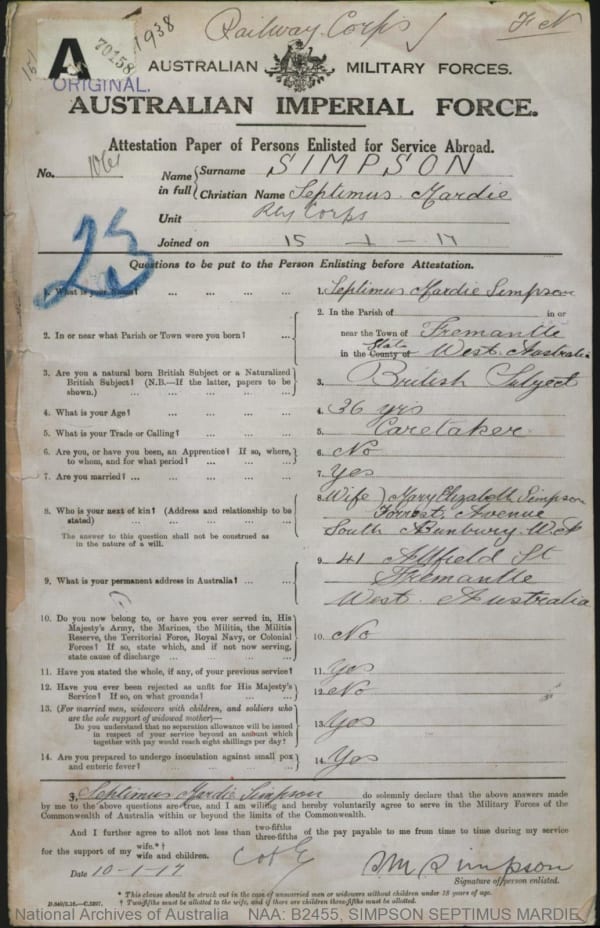 Railway Corps
A
70158
1938
ORIGINAL.
AUSTRALIAN MILITARY FORCES.
AUSTRALIAN IMPERIAL FORCE.
Attestation Paper of Persons Enlisted for Service Abroad.
No.
Name in full { Surname SIMPSON
Christian Name Septimus Mardie
Unit Rly Corps
Joined on 15 - 1 - 17
23
Questions to be put to the Person Enlisting before Attestation.
1. What is your Name? ... ... ... 1. Septimus Mardie Simpson
2. In or near what Parish or Town were you born? ... 2. In the Parish of in or
near the Town of Fremantle
in the County of State West Australia
3. Are you a natural born British Subject or a Naturalized
British Subject? (N.B.—If the latter, papers to be
shown.) ... ... ... 3. British Subject
4. What is your Age? ... ... ... 4. 36 yrs
5. What is your Trade or Calling? ... ... ... 5. Caretaker
6. Are you, or have you been, an Apprentice? If so, where,
to whom, and for what period? ... ... ... 6. No
7. Are you married? ... ... ... 7. Yes
8. Who is your next of kin? (Address and relationship to be
stated) ... ... ... 8. Wife) Mary Elizabeth Simpson
Forrest Avenue
South Bunbury W.A
The answer to this question shall not be construed as
in the nature of a will.
9. What is your permanent address in Australia? ... ... 9. 41 Attfield St
Fremantle
West Australia
10. Do you now belong to, or have you ever served in, His
Majesty's Army, the Marines, the Militia, the Militia
Reserve, the Territorial Force, Royal Navy, or Colonial
Forces? If so, state which, and if not now serving,
state cause of discharge ... ... ... 10. No
11. Have you stated the whole, if any, of your previous service? 11. Yes
12. Have you ever been rejected as unfit for His Majesty's
Service? If so, on what grounds? ... ... 12. No
13. (For married men, widowers with children, and soldiers who
are the sole support of widowed mother)—
Do you understand that no separation allowance will be issued
in respect of your service beyond an amount which
together with pay would reach eight shillings per day? 13. Yes
14. Are you prepared to undergo inoculation against small pox
and enteric fever? ... ... ... 14. Yes
Septimus Mardie Simpson do solemnly declare that the above answers made
by me to the above questions are true, and I am willing and hereby voluntarily agree to serve in the Military Forces of the
Commonwealth of Australia within or beyond the limits of the Commonwealth.
And I further agree to allot not less than two-fifths three-fifths of the pay payable to me from time to time during my service
for the support of my wife.*† wife and children.
Date 10-1-17 S M Simpson
Signature of person enlisted.
* This clause should be struck out in the case of unmarried men or widowers without children under 18 years of age.
† Two-fifths must be allotted to the wife, and if there are children three-fifths must be allotted.
National Archives of Australia NAA: B2455, SIMPSON SEPTIMUS MARDIE